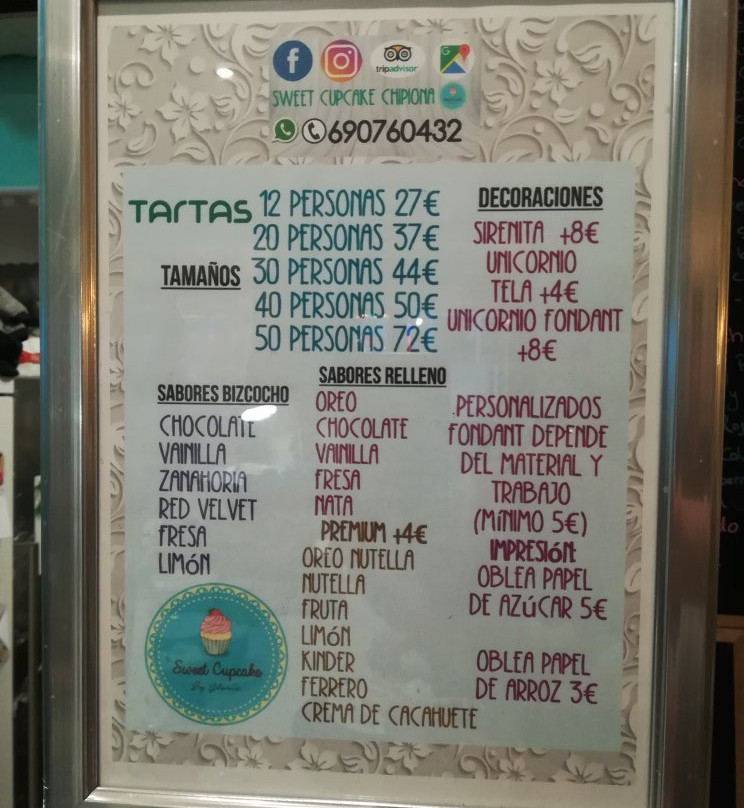 tripadvisor
SWEET CUPCAKE CHIPIONA
690760432
TARTAS
12 PERSONAS 27€
20 PERSONAS 37€
TAMAÑOS
30 PERSONAS 44€
40 PERSONAS 50€
50 PERSONAS 72€
DECORACIONES
SIRENITA +8€
UNICORNIO
TELA +4€
UNICORNIO FONDANT
+8€
SABORES BIZCOCHO
CHOCOLATE
VAINILLA
ZANAHORIA
RED VELVET
FRESA
LIMÓN
SABORES RELLENO
OREO
CHOCOLATE
VAINILLA
FRESA
NATA
PREMIUM +4€
OREO NUTELLA
NUTELLA
FRUTA
LIMÓN
KINDER
FERRERO
CREMA DE CACAHUETE
PERSONALIZADOS
FONDANT DEPENDE
DEL MATERIAL Y
TRABAJO
(MÍNIMO 5€)
IMPRESIÓN
OBLEA PAPEL
DE AZÚCAR 5€
OBLEA PAPEL
DE ARROZ 3€
Sweet Cupcake
By Gloria